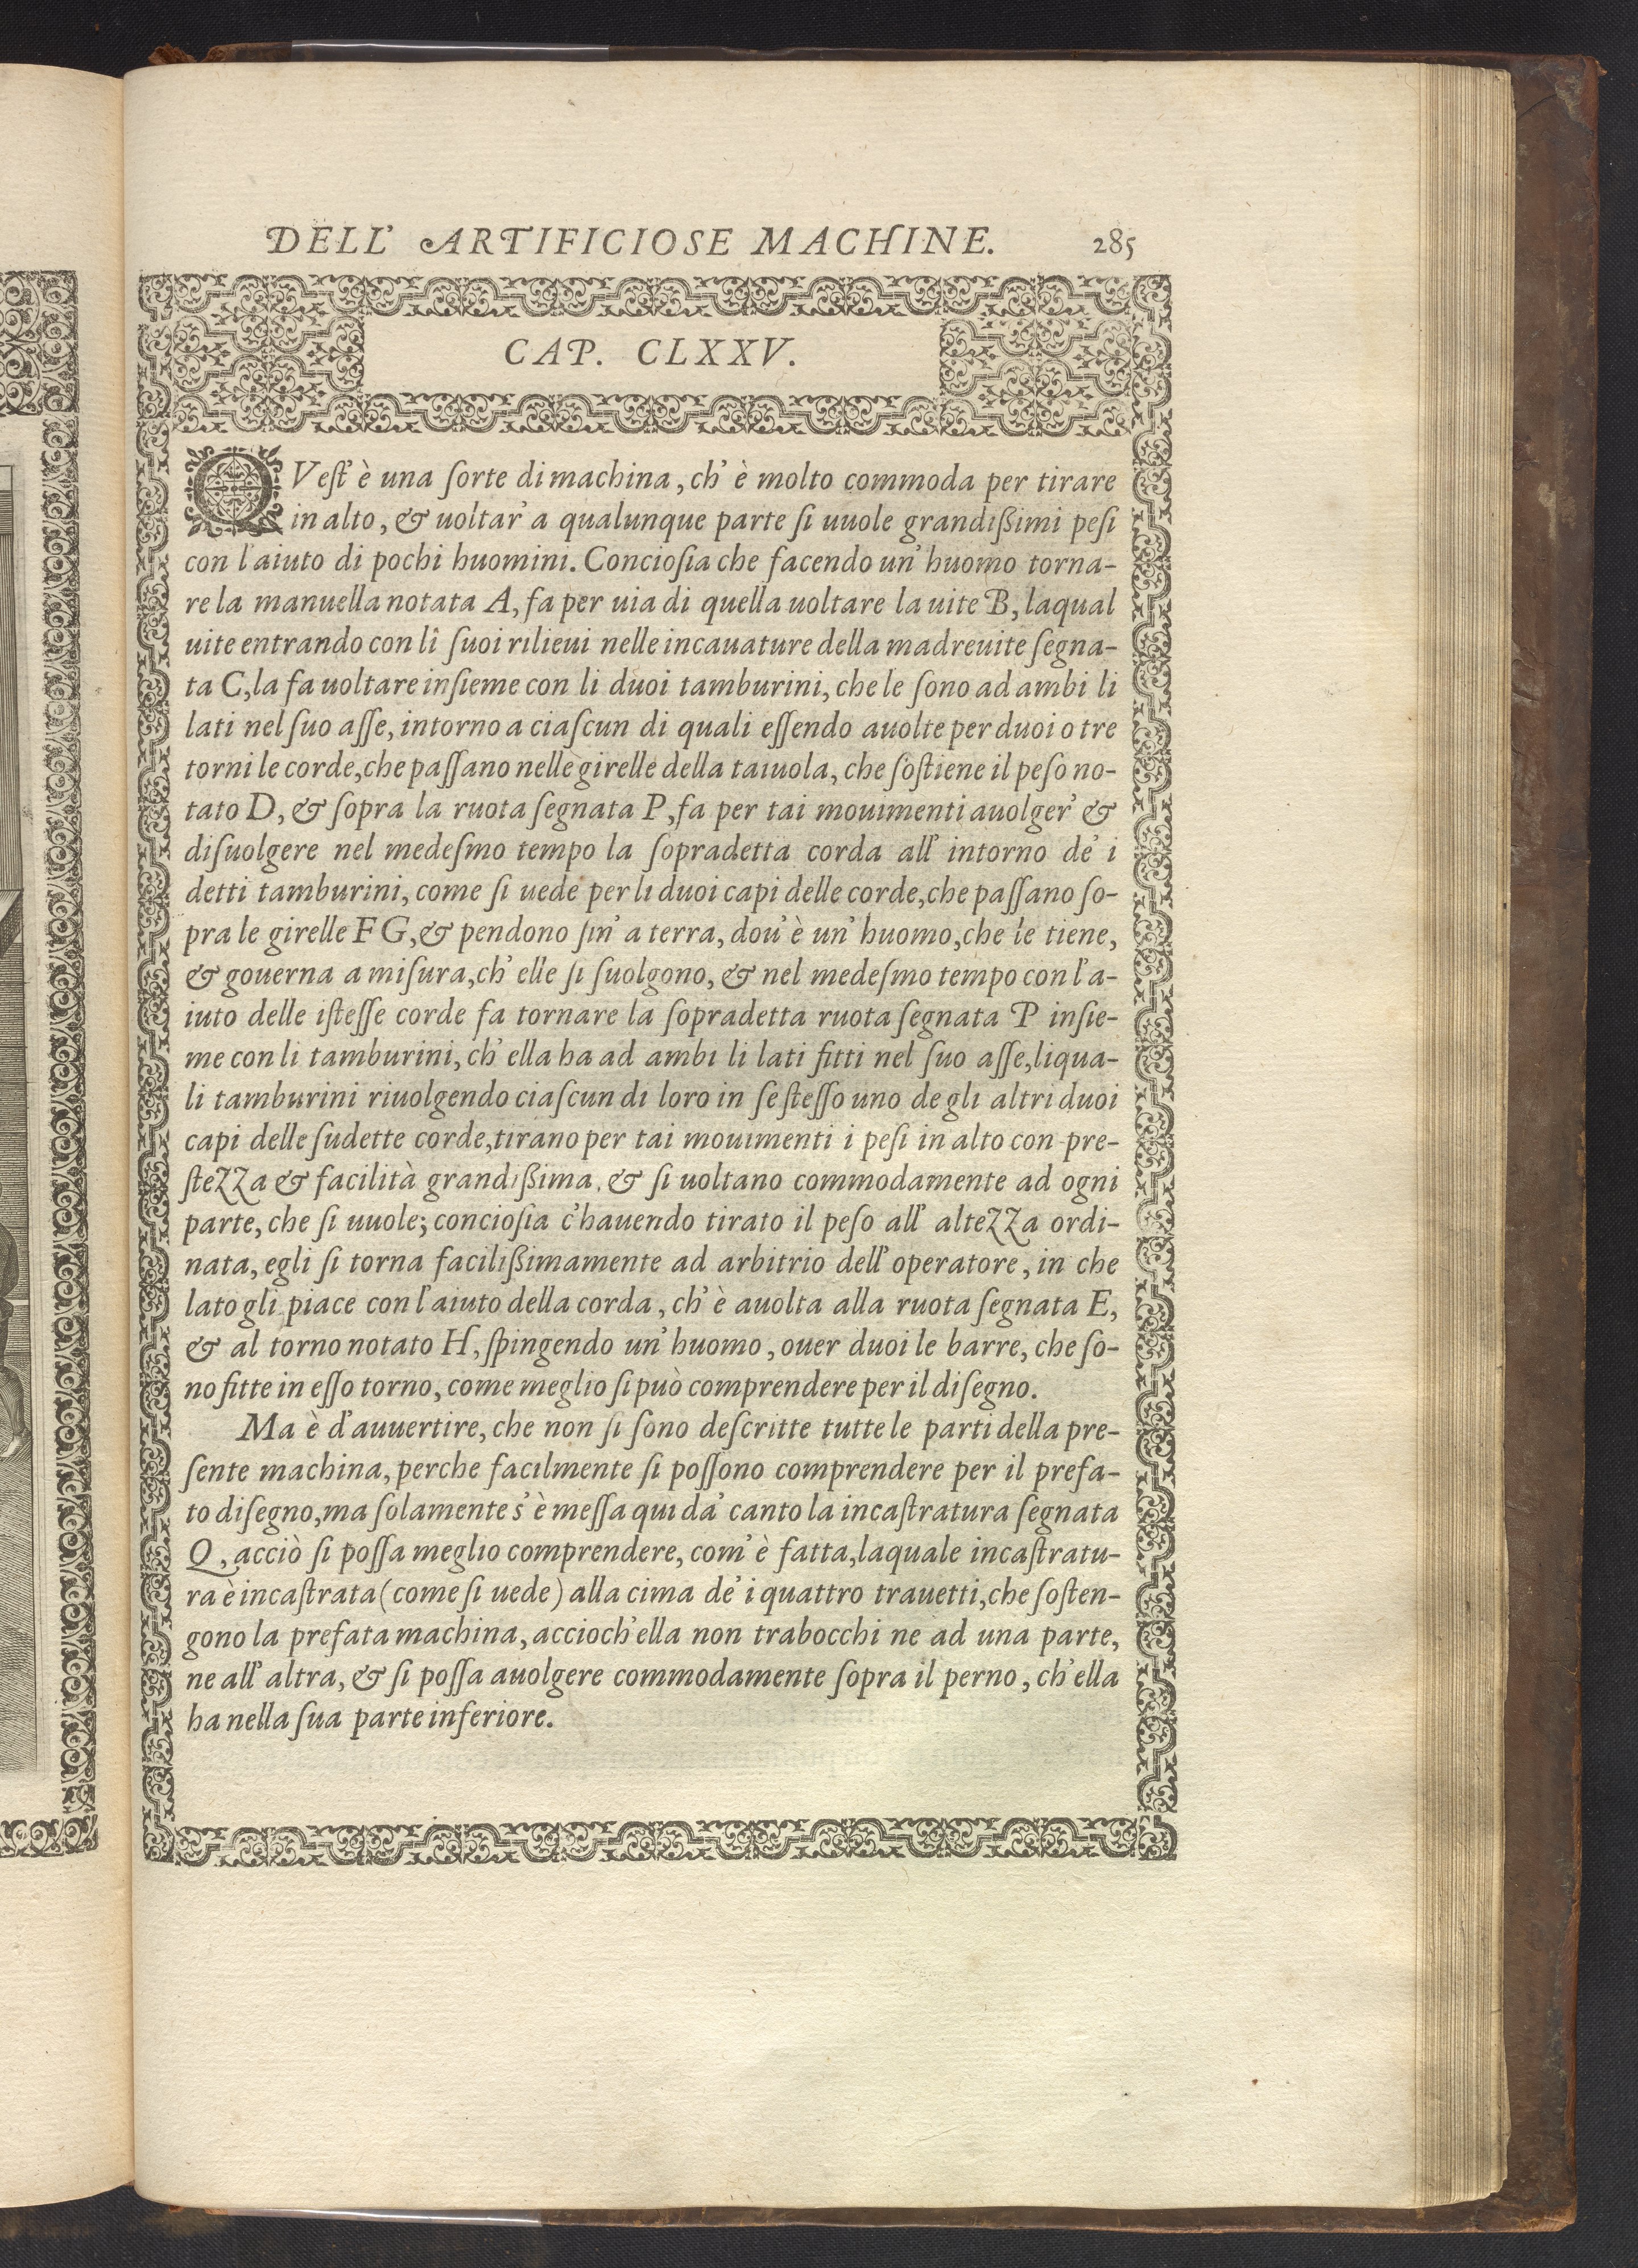 DELL' ARTIFICIOSE MACHINE. 285
CAP. CLXXV.
QVest' è una sorte di machina, ch' è molto commoda per tirare
in alto, & uoltar' a qualunque parte si uuole grandißimi pesi
con l'aiuto di pochi huomini. Conciosia che facendo un' huomo torna-
re la manuella notata A, fa per uia di quella uoltare la uite B, laqual
uite entrando con li suoi rilieui nelle incauature della madreuite segna-
ta C, la fa uoltare insieme con li duoi tamburini, che le sono ad ambi li
lati nel suo asse, intorno a ciascun di quali essendo auolte per duoi o tre
torni le corde, che passano nelle girelle della taiuola, che sostiene il peso no-
tato D, & sopra la ruota segnata P, fa per tai mouimenti auolger' &
disuolgere nel medesmo tempo la sopradetta corda all' intorno de' i
detti tamburini, come si uede per li duoi capi delle corde, che passano so-
pra le girelle F G, & pendono sin' a terra, dou' è un' huomo, che le tiene,
& gouerna a misura, ch' elle si suolgono, & nel medesmo tempo con l'a-
iuto delle istesse corde fa tornare la sopradetta ruota segnata P insie-
me con li tamburini, ch' ella ha ad ambi li lati fitti nel suo asse, liqua-
li tamburini riuolgendo ciascun di loro in se stesso uno de gli altri duoi
capi delle sudette corde, tirano per tai mouimenti i pesi in alto con pre-
stezza & facilità grandißima, & si uoltano commodamente ad ogni
parte, che si uuole; conciosia c'hauendo tirato il peso all' altezza ordi-
nata, egli si torna facilißimamente ad arbitrio dell' operatore, in che
lato gli piace con l'aiuto della corda, ch' è auolta alla ruota segnata E,
& al torno notato H, spingendo un' huomo, ouer duoi le barre, che so-
no fitte in esso torno, come meglio si può comprendere per il disegno.
Ma è d'auuertire, che non si sono descritte tutte le parti della pre-
sente machina, perche facilmente si possono comprendere per il prefa-
to disegno, ma solamente s' è messa qui da' canto la incastratura segnata
Q, acciò si possa meglio comprendere, com' è fatta, laquale incastratu-
ra è incastrata (come si uede) alla cima de' i quattro trauetti, che sosten-
gono la prefata machina, accioch'ella non trabocchi ne ad una parte,
ne all' altra, & si possa auolgere commodamente sopra il perno, ch'ella
ha nella sua parte inferiore.